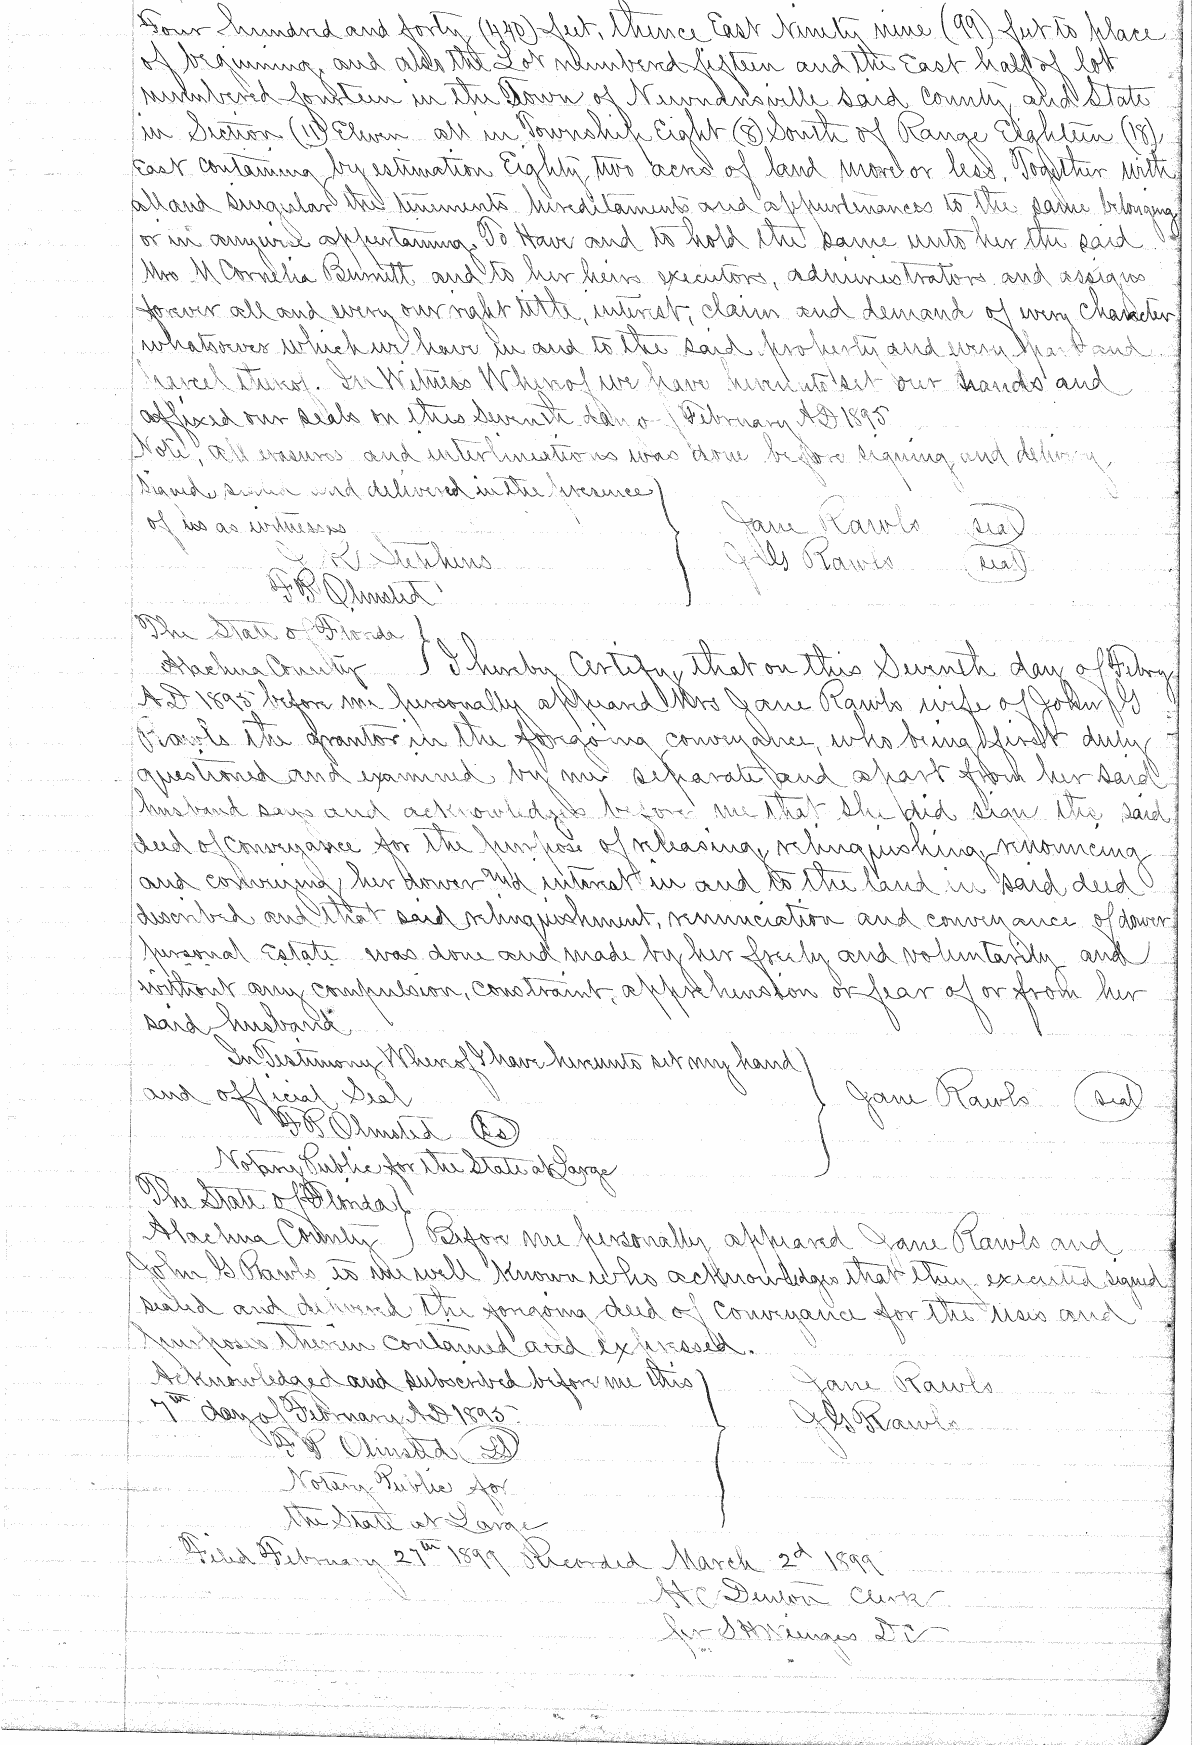 Four hundred and forty (440) feet, thence East Ninety nine (99) feet to place
of beginning, and also the Lot numbered fifteen and the East half of lot
numbered fourteen in the Town of Newnansville said County and State
in Section (11) Eleven all in Township Eight (8) South of Range Eighteen (18)
East containing by estimation Eighty two acres of land more or less. Together with
all and singular the tenements hereditaments and appurtenances to the same belonging
or in anywise appertaining. To Have and to hold the same unto her the said
Mrs M Cornelia Burnett and to her heirs executors, administrators and assigns
forever all and every our right title, interest, claim and demand of every character
whatsoever which we have in and to the said property and every part and
parcel thereof. In Witness Whereof we have hereunto set our hands and
affixed our seals on this Seventh day of February A.D 1895
Note, all erasures and interlineations was done before signing and delivery.
Signed, sealed and delivered in the presence
of us as witnesses
Jane Rawls seal
J G Rawls seal
Stephens
F P Olmsted
The State of Florida
Alachua County I hereby Certify, that on this Seventh day of Febry
A.D 1895 before me personally appeared Mrs Jane Rawls wife of John G
Rawls the grantor in the foregoing conveyance, who being first duly
questioned and examined by me separate and apart from her said
husband says and acknowledges before me that she did sign the said
deed of Conveyance for the purpose of releasing, relinquishing, renouncing
and conveying her dower and interest in and to the land in said deed
described and that said relinquishment, renunciation and conveyance of dower
personal Estate was done and made by her freely and voluntarily and
without any compulsion, constraint, apprehension or fear of or from her
said husband
In Testimony Whereof I have hereunto set my hand
and official Seal
Jane Rawls seal
F P Olmsted LS
Notary Public for the State at Large
The State of Florida
Alachua County Before me personally appeared Jane Rawls and
John G Rawls to me well known who acknowledges that they executed signed
sealed and delivered the foregoing deed of Conveyance for the uses and
purposes therein contained and expressed.
Acknowledged and subscribed before me this
7th day of February A.D 1895
Jane Rawls
J G Rawls
F P Olmsted LS
Notary Public for
the State at Large
Filed February 27th 1899 Recorded March 2d 1899
H C Denton Clerk
per S H Wienges D C